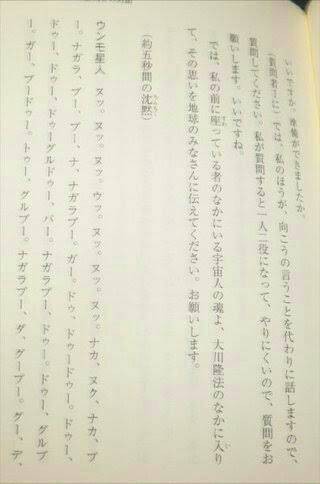 いいですか。準備ができましたか。
(質問者1に)では、私のほうが、向こうの言うことを代わりに話しますので、
質問してください。私が質問すると一人二役になって、やりにくいので、質問をお
願いします。いいですね。
では、私の前に座っている者のなかにいる宇宙人の魂よ、大川隆法のなかに入り
て、その思いを地球のみなさんに伝えてください。お願いします。
(約五秒間の沈黙)
ウンモ星人 ヌッ。ヌッ。ヌッ。ウッ。ヌッ。ヌッ。ヌッ。ナカ、ヌク、ナカ、ブ
ー。ナガラ、ブー、ブー、ナ、ナガラブー。ガー。ドゥ、ドゥードゥー。ドゥー、
ドゥー、ドゥー、ドゥーグルドゥー、バー。ナガラブー、ドゥー。ドゥー、グルブ
ー。ガー、ブードゥー。トゥー、グルブー。ナガラブー、ダ、グーブー。グー、デ、